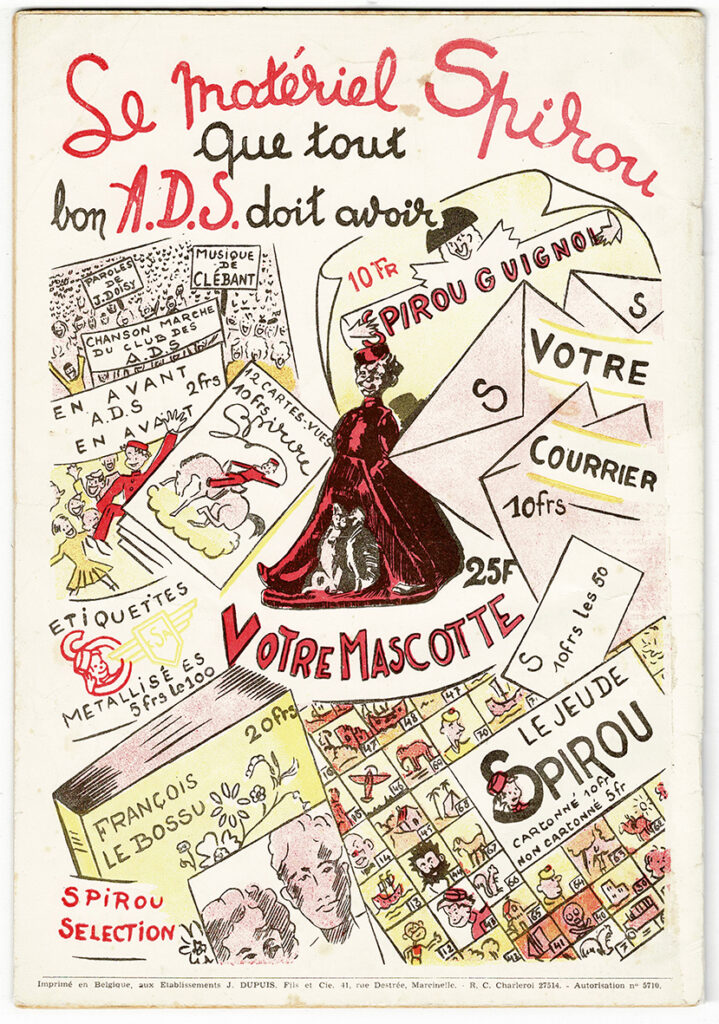 Le matériel Spirou
Que tout
bon A.D.S. doit avoir
PAROLES
DE
J. DOISY
MUSIQUE
DE
CLÉBANT
CHANSON MARCHE
DU CLUB DES
A.D.S
EN AVANT
A.D.S 2frs
EN AVANT
12 CARTES-VUES
10frs
Spirou
10 FR
SPIROU GUIGNOL
S
S
VOTRE
COURRIER
10frs
25F
VOTRE MASCOTTE
S 10frs les 50
ETIQUETTES
METALLISÉES
5frs le 100
20frs
FRANÇOIS
LE BOSSU
SPIROU
SELECTION
LE JEU DE
SPIROU
CARTONNÉ 10fr
NON CARTONNÉ 5fr
Imprimé en Belgique, aux Etablissements J. DUPUIS. Fils et Cie. 41, rue Destrée, Marcinelle. - R. C. Charleroi 27514. - Autorisation n° 5710.